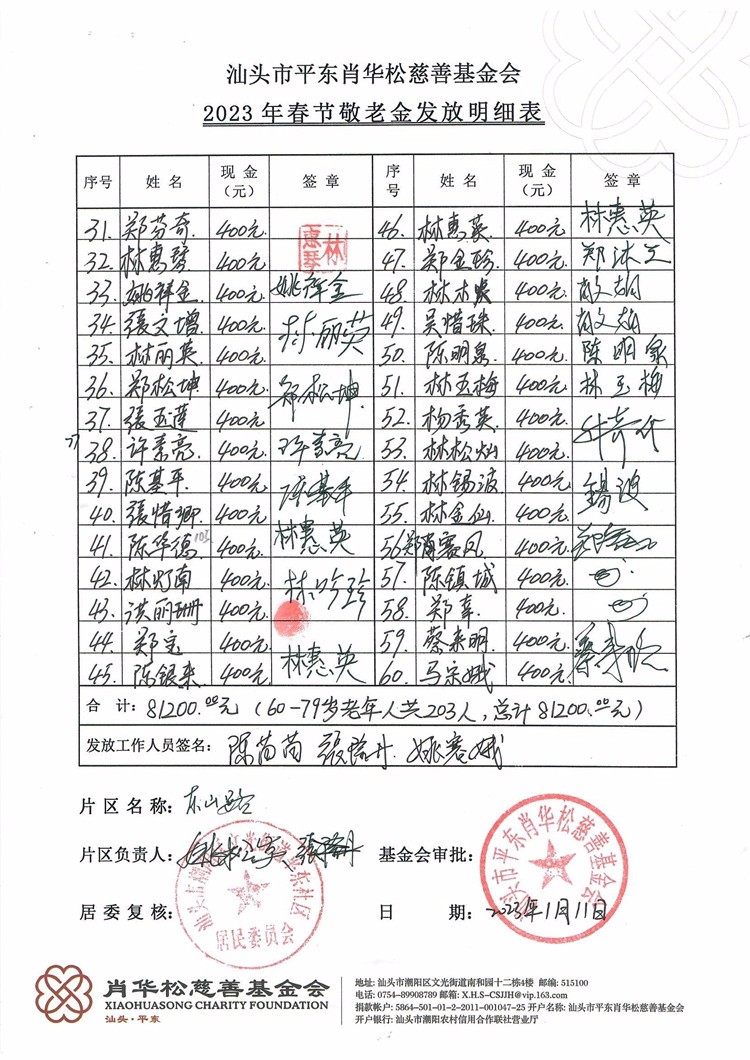 汕头市平东肖华松慈善基金会
2023年春节敬老金发放明细表
序号 姓名 现金（元） 签章 序号 姓名 现金（元） 签章
31. 郑芬奇 400元 46. 林惠英 400元 林惠英
32. 林惠琴 400元 林惠琴 47. 郑金珍 400元
33. 姚祥金 400元 姚祥金 48. 林木炎 400元
34. 張文增 400元 49. 吴惜珠 400元
35. 林丽英 400元 林丽英 50. 陈明泉 400元 陈明泉
36. 郑松坤 400元 郑松坤 51. 林玉梅 400元 林玉梅
37. 張玉莲 400元 52. 杨秀英 400元
38. 许素亮 400元 许素亮 53. 林松灿 400元
39. 陈基平 400元 陈基平 54. 林锡波 400元 锡波
40. 張惜卿 400元 55. 林金仙 400元
41. 陈华德 400元 林惠英 56. 郑 赛凤 400元
42. 林灯南 400元 57. 陈镇城 400元
43. 洪丽珊 400元 58. 郑幸 400元
44. 郑宝 400元 59. 蔡来明 400元
45. 陈银来 400元 林惠英 60. 马宗娥 400元
合 计：81200.00元（60-79岁老年人共203人，总计81200.00元）
发放工作人员签名：
片区名称：东山路
片区负责人： 基金会审批：
居委复核： 日 期：2023年1月11日
居民委员会
汕头市平东肖华松慈善基金会
肖华松慈善基金会
XIAOHUASONG CHARITY FOUNDATION
汕头·平东
地址: 汕头市潮阳区文光街道南和园十二栋4楼 邮编: 515100
电话: 0754-89908789 邮箱: X.H.S-CSJJH@vip.163.com
捐款帐户: 5864-501-01-2-2011-001047-25 开户名称: 汕头市平东肖华松慈善基金会
开户银行: 汕头市潮阳农村信用合作联社营业厅